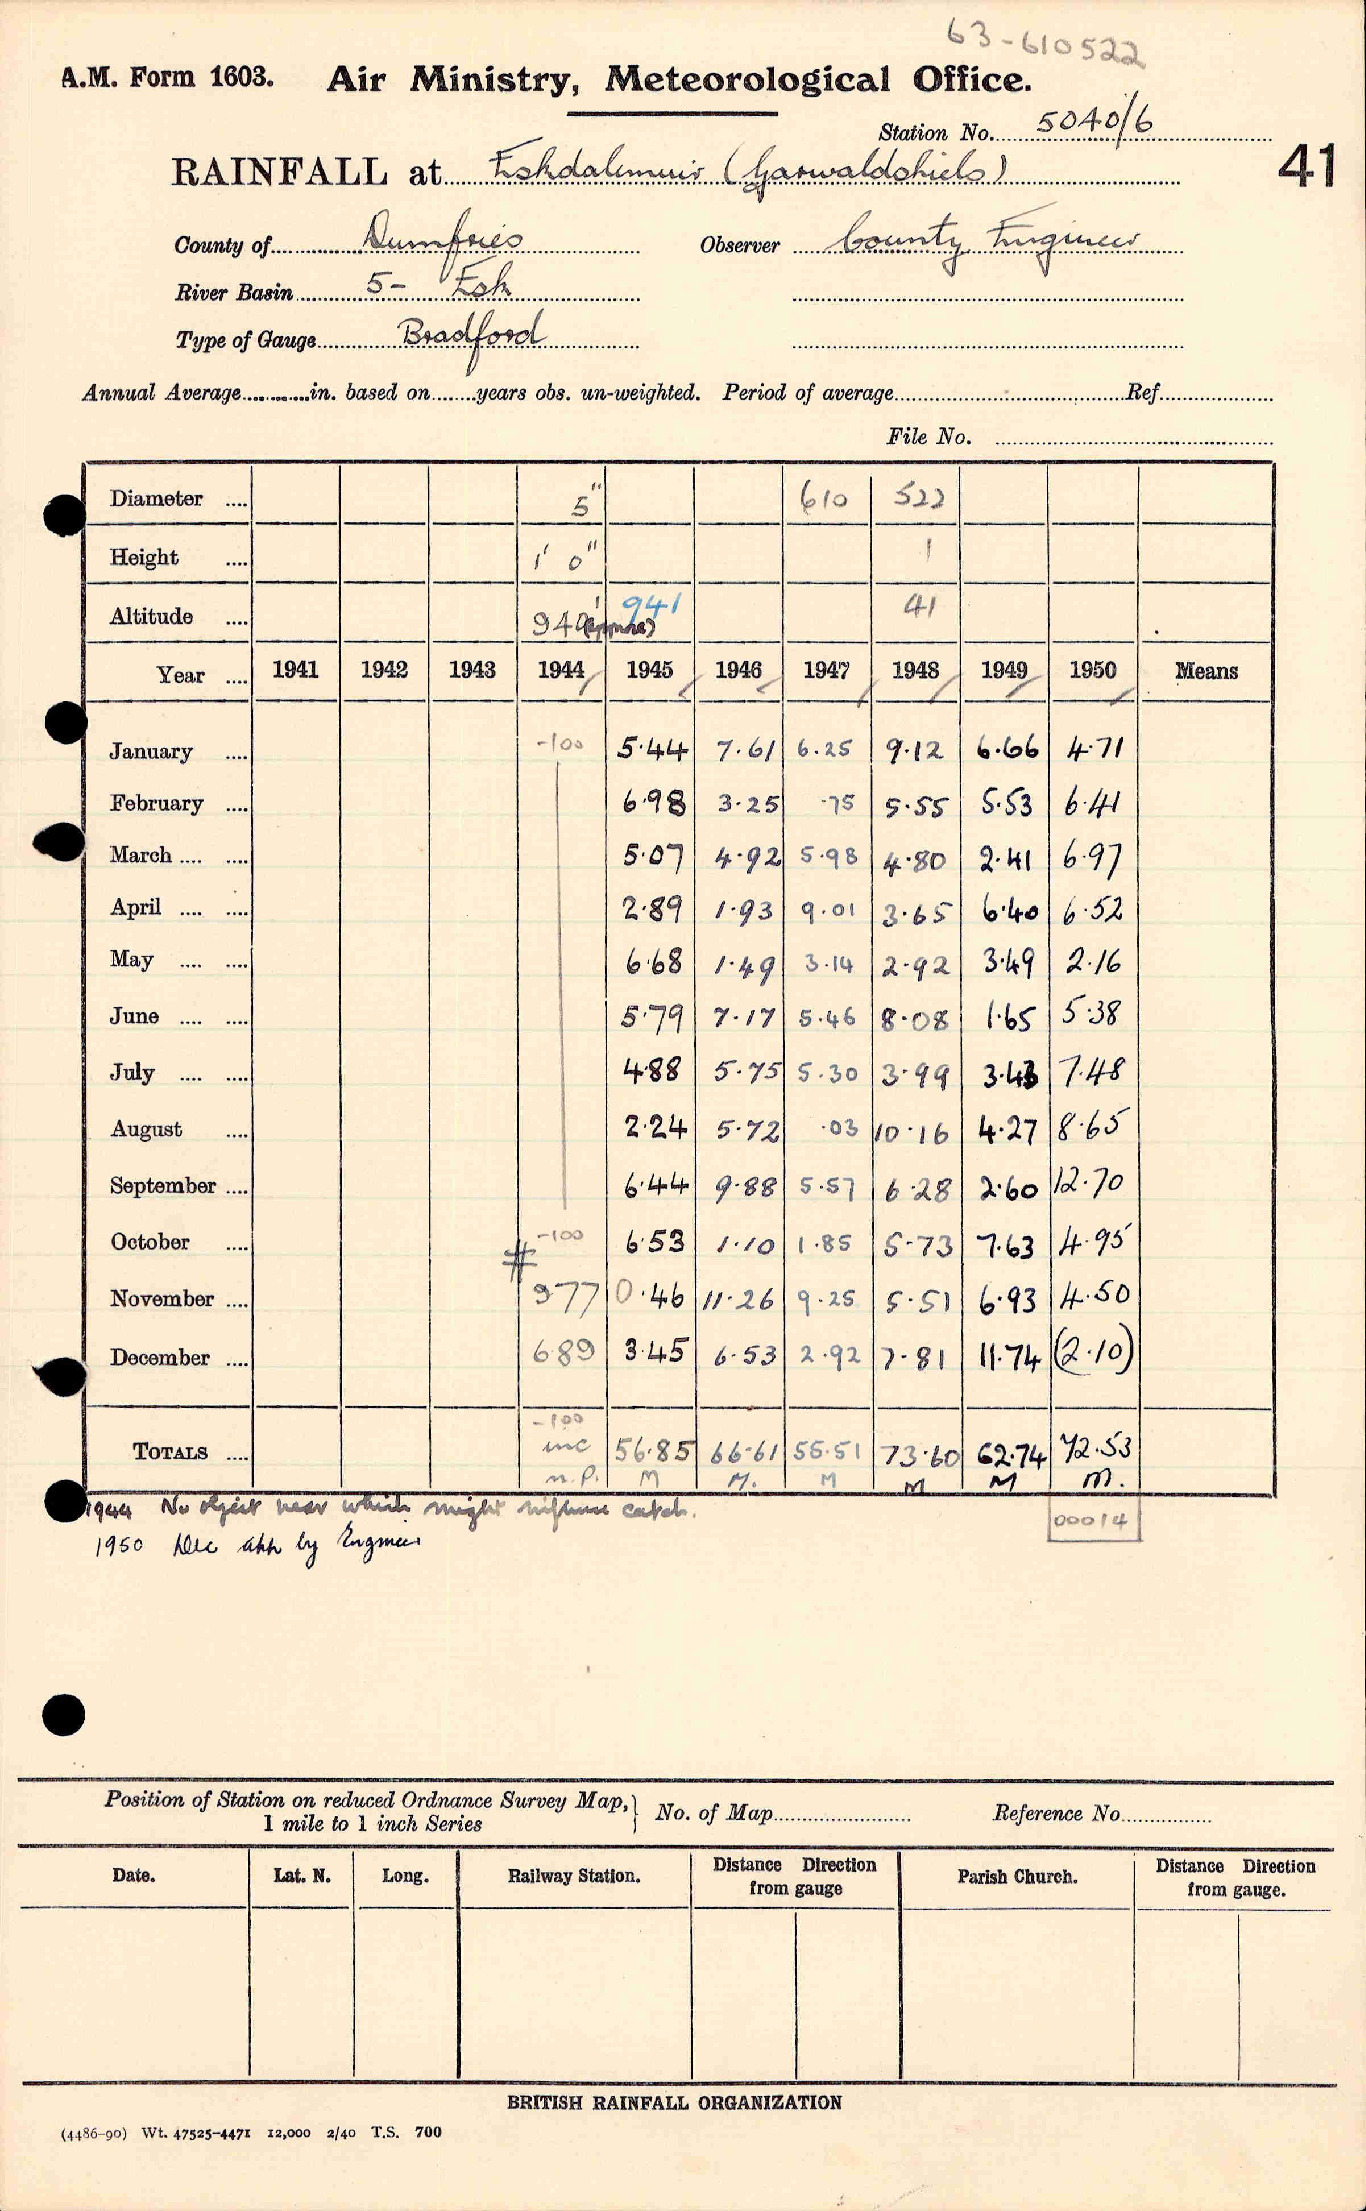 63-610522
A.M. Form 1603. Air Ministry, Meteorological Office.
Station No. 5040/6
RAINFALL at Eskdalemuir (Garwaldshiels) 41
County of Dumfries Observer County Engineer
River Basin 5- Esk
Type of Gauge Bradford
Annual Average............in. based on........years obs. un-weighted. Period of average........ Ref........
File No. ........
Diameter .... 5" 610 522
Height .... 1' 0" 1
Altitude .... 940' (approx) 941 41
Year .... 1941 1942 1943 1944 1945 1946 1947 1948 1949 1950 Means
January .... -100 5.44 7.61 6.25 9.12 6.66 4.71
February .... 6.98 3.25 .75 5.55 5.53 6.41
March .... .... 5.07 4.92 5.98 4.80 2.41 6.97
April .... .... 2.89 1.93 9.01 3.65 6.40 6.52
May .... .... 6.68 1.49 3.14 2.92 3.49 2.16
June .... .... 5.79 7.17 5.46 8.08 1.65 5.38
July .... .... 4.88 5.75 5.30 3.99 3.43 7.48
August .... 2.24 5.72 .03 10.16 4.27 8.65
September .... 6.44 9.88 5.57 6.28 2.60 12.70
October .... # -100 6.53 1.10 1.85 5.73 7.63 4.95
November .... 977 0.46 11.26 9.25 5.51 6.93 4.50
December .... 689 3.45 6.53 2.92 7.81 11.74 (2.10)
-100
TOTALS .... inc 56.85 66.61 55.51 73.60 62.74 72.53
n.p. M M. M M M m.
1944 No object near which might influence catch. 00014
1950 Dec by Engineer
Position of Station on reduced Ordnance Survey Map, } No. of Map........ Reference No........
1 mile to 1 inch Series
Date. Lat. N. Long. Railway Station. Distance Direction from gauge Parish Church. Distance Direction from gauge.
BRITISH RAINFALL ORGANIZATION
(4486-90) Wt. 47525-4471 12,000 2/40 T.S. 700